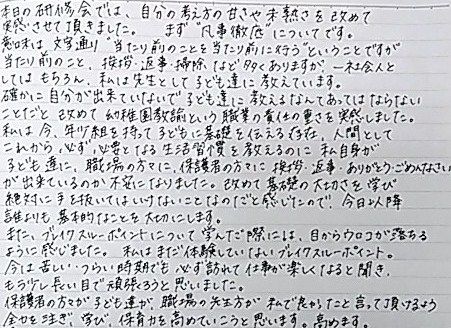 本日の研修会では、自分の考え方の甘さや未熟さを改めて
実感させて頂きました。 まず"凡事徹底"についてです。
意味は文字通り"当たり前のことを当たり前に行う"ということですが
当たり前のこと、挨拶・返事・掃除など多々ありますが、一社会人と
してはもちろん、私は先生として子ども達に教えています。
確かに自分が出来ていないで子ども達に教えるなんてあってはならない
ことだと改めて幼稚園教諭という職業の責任の重さを実感しました。
私は今、年少組を持って子どもに基礎を伝える存在、人間として
これから、必ず必要となる生活習慣を教えるのに私自身が
子ども達に、職場の方々に、保護者の方々に挨拶・返事・ありがとう・ごめんなさい
が出来ているのか不安になりました。改めて基礎の大切さを学び
絶対に手を抜いてはいけないことなのだと感じたので、今日以降
誰よりも基本的なことを大切にします。
また、ブレイクスルーポイントについて学んだ際には、目からウロコが落ちる
ように感じました。 私はまだ体験していないブレイクスルーポイント。
今は苦しい・つらい時期でも必ず訪れて仕事が楽しくなると聞き、
もう少し長い目で頑張ろうと思いました。
保護者の方々が子ども達が、職場の先生方が私で良かったこと言って頂けるよう
全力を注ぎ、学び、保育力を高めていこうと思います。高めます。